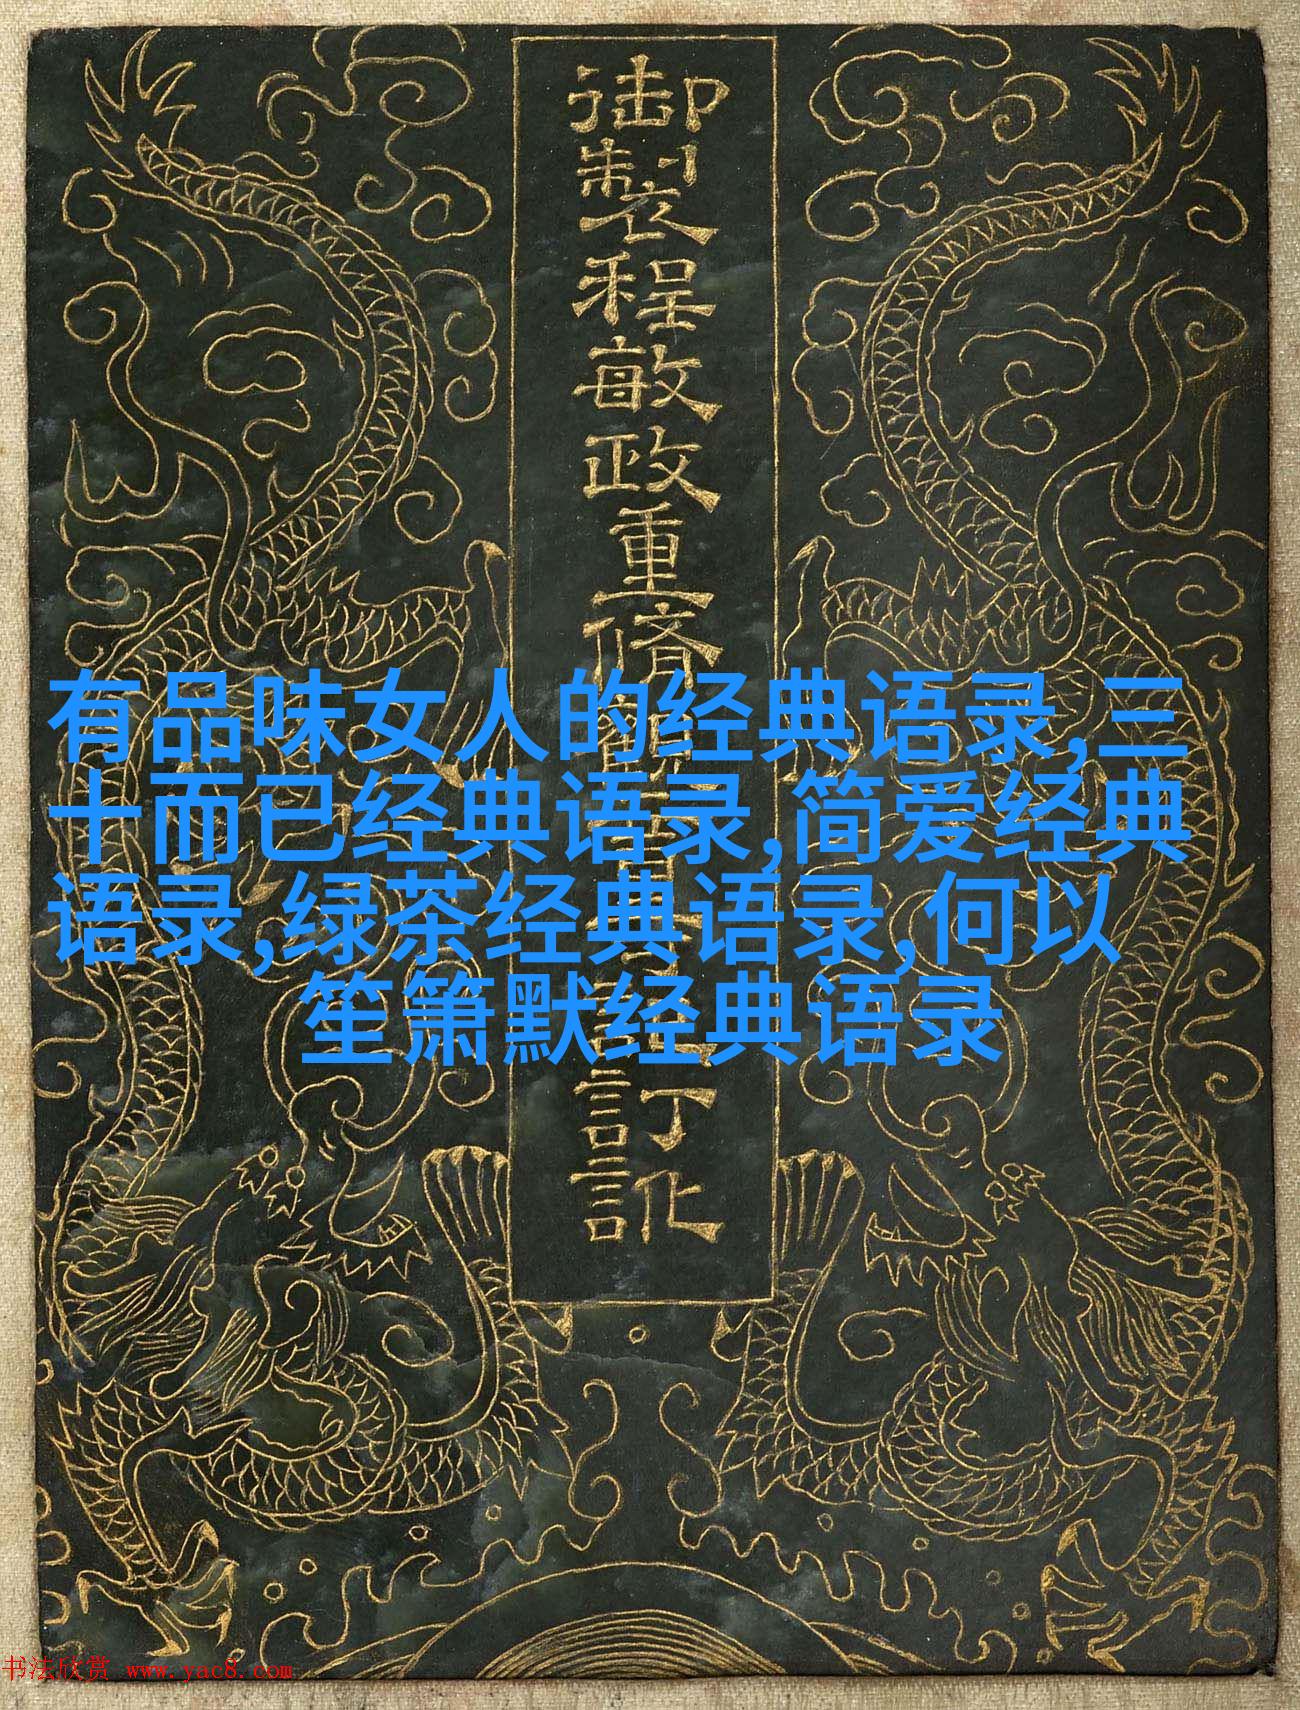 御製程敏政重脩
訂訛
有品味女人的经典语录,三
十而已经典语录,简爱经典
语录,绿茶经典语录,何以
笙箫默经典语录
书法欣赏 www.yac8.com